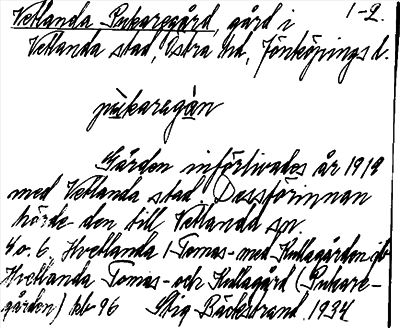 Vetlanda Pukaregård, gård i 1-2.
Vetlanda stad, Östra hd, Jönköpings l.
pùkaregàn
Gården införlivades år 1919
med Vetlanda stad. Dessförinnan
hörde den till Vetlanda sn.
4 o. 6 Hvetlanda 1 Tomas- med Kullagården jb
Hvetlanda Tomas- och Kullagård (Pukare-
gården) kb 96 Stig Bäckstrand 1934